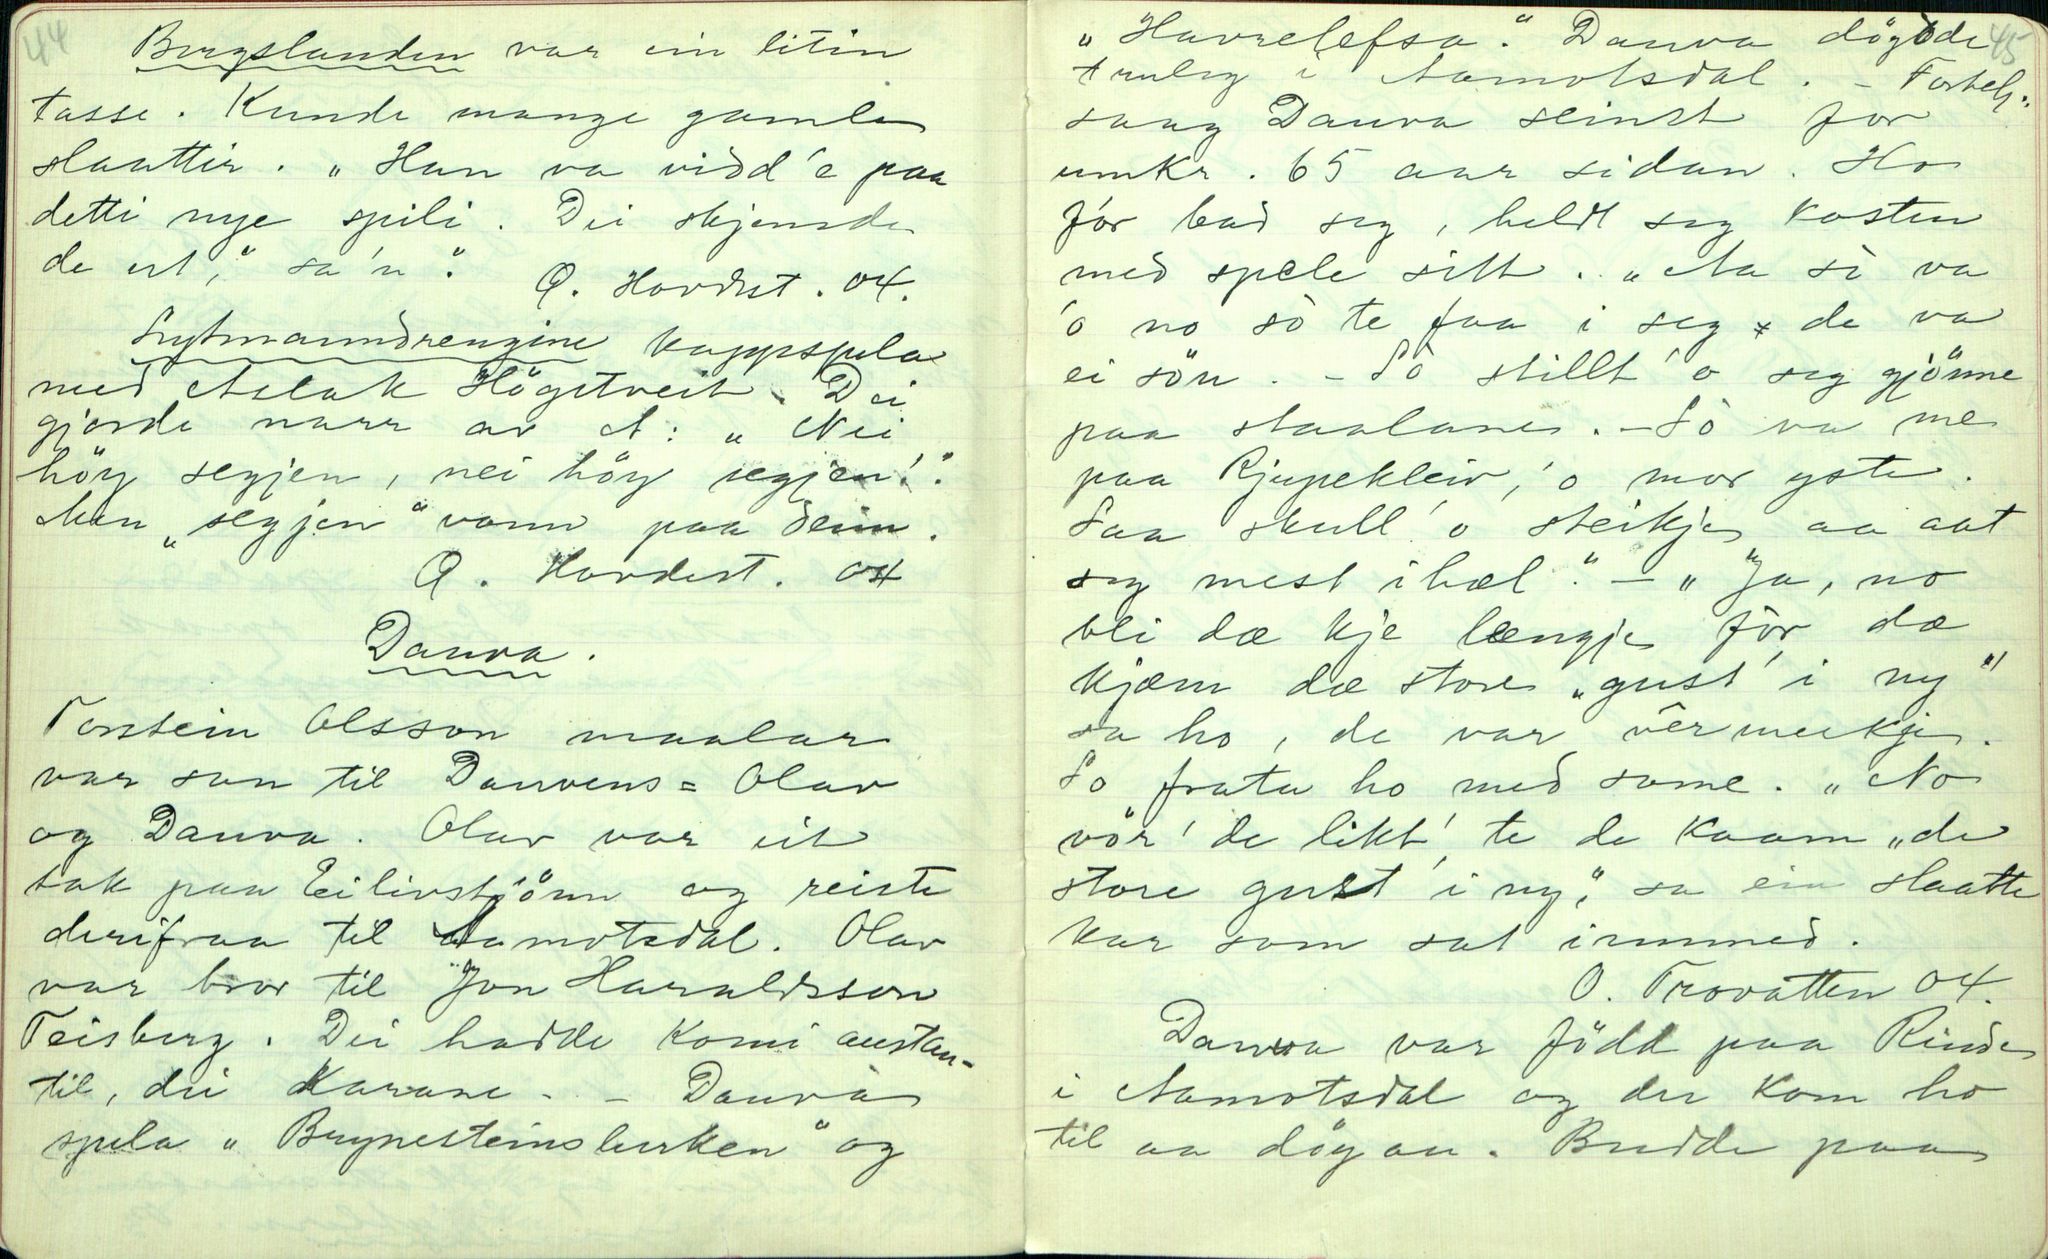 44
Bergslanden var ein litin
tasse. Kunde mange gamle
slaattir. „Han va vidd'e paa
detti nye spili. Dei skjemde
de ut," sa'n".
Q. Hovdest. 04.
Lytmanndrengine kappspela
med Aslak Högetveit. Dei
gjorde narr av A: „Nei
höy segjen, nei höy segjen!".
Men „segjen" vann paa deim.
Q. Hovdest. 04
Dauva.
Torstein Olsson maalar
var son til Dauvens-Olav
og Dauva. Olav var eit
tak paa Eilivstjönn og reiste
derifraa til Aamotsdal. Olav
var bror til Jon Haraldsson
Teisberg. Dei hadde komi austan-
til, dei karane. - Dauva
spela „Brynesteinslurken" og
45
„Havrelefsa". Dauva döydde
truleg i Aamotsdal. - Forteh.
saag Dauva seinst for
umkr. 65 aar sidan. Ho
fór bad seg, heldt seg kosten
med spele sitt. „Aa sò va
'o no sò te faa i seg, de va
ei sön. - Sò stillt 'o seg gjönne
paa staalane. - Sò va me
paa Rjupekleiv, 'o mor yste.
Saa skull 'o steikje aa aat
seg mest ihæl". - „Ja, no
bli dæ kje længje för dæ
kjæm dæ store „gust i ny"
sa ho, de var vêrmerkje.
So frata ho med some. „No
vör' de likt te de kaam „de
store gust i ny", sa ein slaatte
kar som sat innmed.
O. Trovatten 04.
Dauva var född paa Rinde
i Aamotsdal og der kom ho
til aa döy au. Budde paa